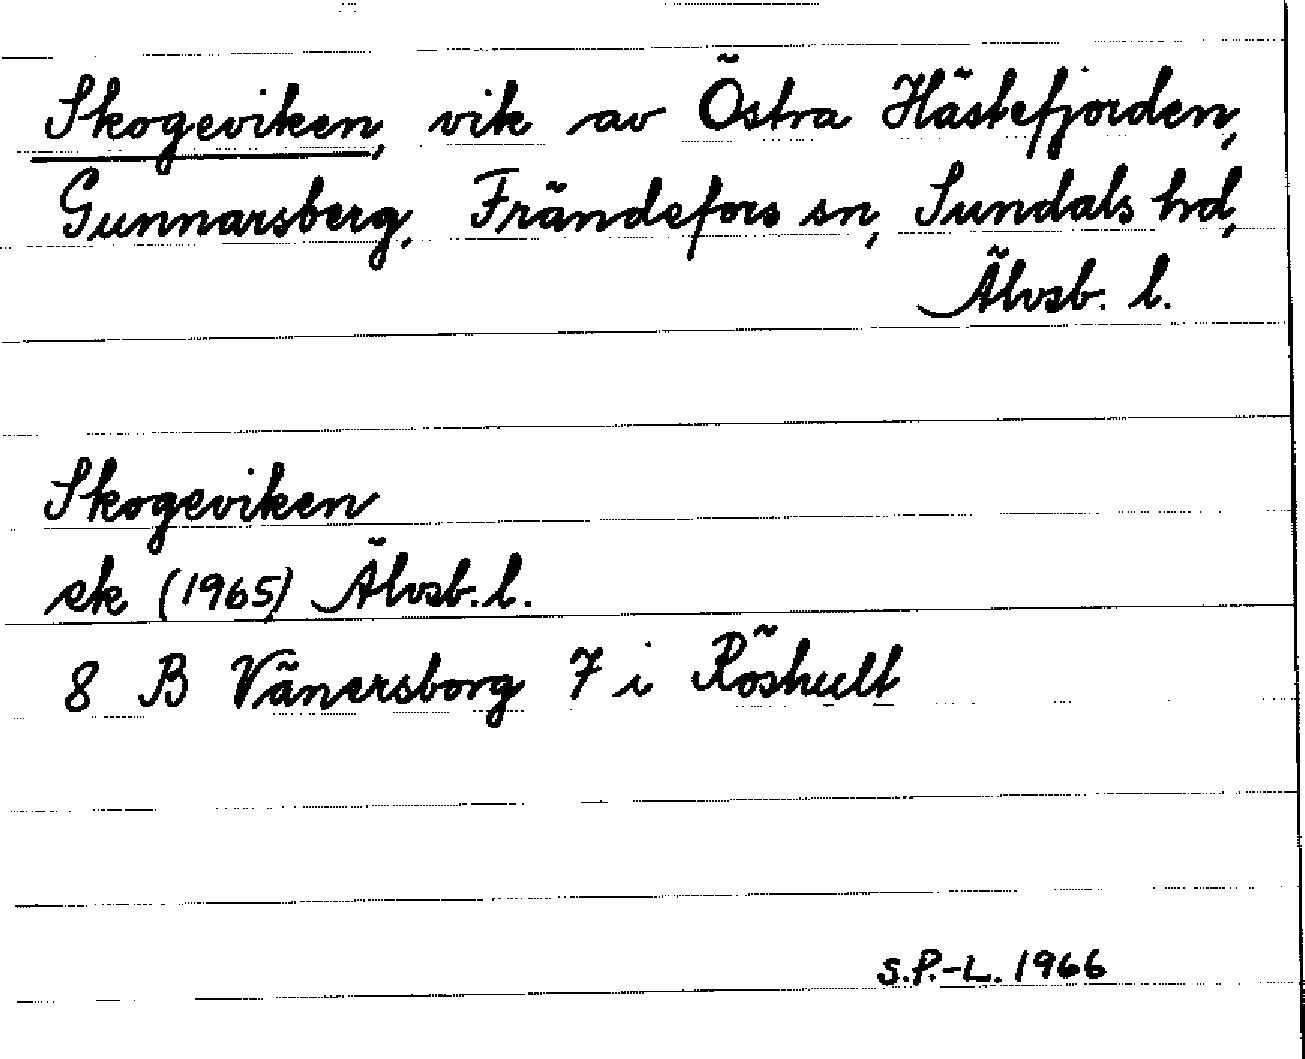 Skogeviken, vik av Östra Hästefjorden,
Gunnarsberg, Frändefors sn, Sundals hd,
Älvsb. l.
Skogeviken
ek (1965) Älvsb. l.
8 B Vänersborg 7 i Röshult
S.P.-L. 1966